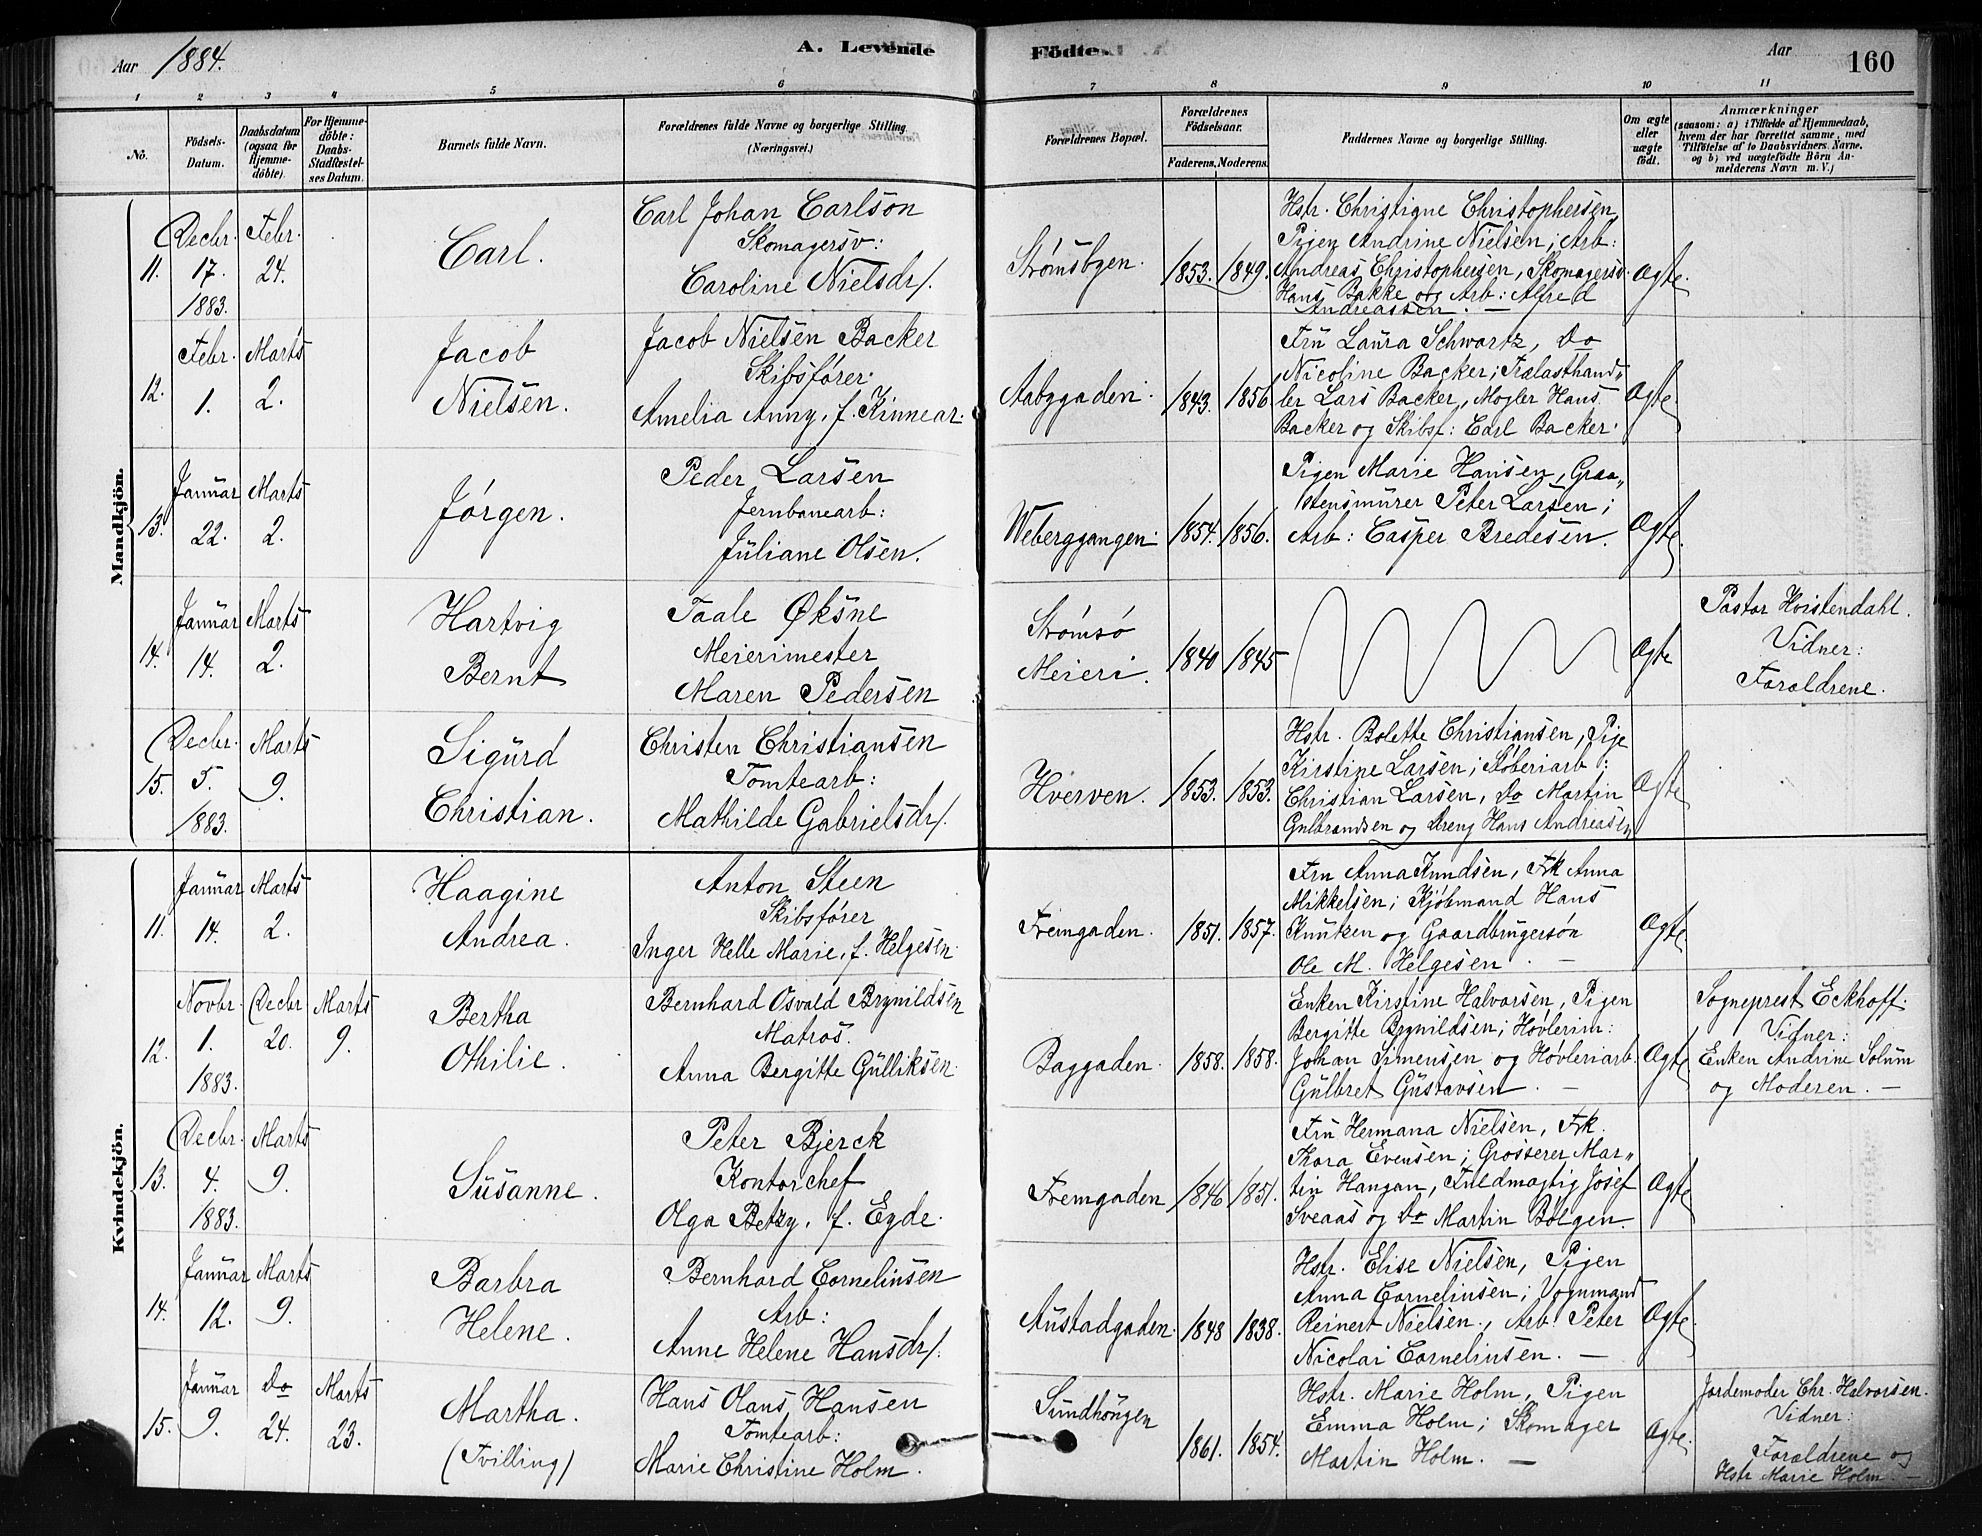 Aar 1884. A. Levende Födte. Aar 160
1 2 3 4 5 6 7 8 9 10 11
No.
Födsels-
Datum.
Daabsdatum
(ogsaa for
Hjemme-
döbte)
For Hjemme-
döbte:
Daabs-
Stadfæstel-
ses Datum.
Barnets fulde Navn.
Forældrenes fulde Navne og borgerlige Stilling
(Næringsvei.)
Forældrenes Bopæl.
Forældrenes
Födselsaar.
Faderens. Moderens.
Faddernes Navne og borgerlige Stilling.
Om ægte
eller
uægte
födt.
Anmærkninger
(saasom: a) i Tilfælde af Hjemmedaab,
hvem der har forrettet samme, med
Tilföielse af to Daabsvidners Navne.
og b) ved uægtefödte Börn An-
melderens Navn m. V.)
Mandkjön.
11.
Decbr.
17.
1883.
Febr.
24.
Carl.
Carl Johan Carlson
Skomagersv:
Caroline Nielsdr/.
Strømsbyen.
1853. 1849.
Hstr. Christigne Christophersen,
Pigen Andrine Nielsen; Arb:
Andreas Christophersen, Skomagersv:
Hans Bakke og Arb: Alfred
Andreassen. —
Ægte.
12.
Febr.
1.
Marts
2.
Jacob
Nielsen.
Jacob Nielsen Backer
Skibsfører.
Amelia Anny, f. Kinnear.
Aabygaden.
1843. 1856
Fru Laura Schwartz, Do
Nicoline Backer; Trælasthand„
ler Lars Backer, Mægler Hans
Backer og Skibsf: Carl Backer.
Ægte
13.
Januar
22.
Marts
2.
Jørgen.
Peder Larsen
Jernbanearb:
Juliane Olsen/.
Weberggangen.
1854. 1856.
Pigen Marie Hansen, Graa„
stensmurer Peter Larsen;
Arb: Casper Bredesen.
Ægte.
14.
Januar
14.
Marts
2.
Hartvig
Bernt
Taale Øksne
Meierimester
Maren Pedersen
Strømsø
Meieri.
1840 1845
Ægte
Pastor Hvistendahl.
Vidner:
Forældrene.
15.
Decbr.
5.
1883.
Marts
9.
Sigurd
Christian.
Christen Christiansen
Tomtearb:
Mathilde Gabrielsdr/.
Hverven.
1853. 1853.
Hstr. Bolette Christiansen, Pige
Kirstine Larsen; Støberiarb:
Christian Larsen, Do Martin
Gulbrandsen og Dreng Hans Andreasen
Ægte
Kvindekjön.
11.
Januar
14.
Marts
2.
Haagine
Andrea.
Anton Steen
Skibsfører
Inger Helle Marie, f. Helgesen.
Fremgaden.
1851. 1857.
Fru Anna Knudsen, Frk Anna
Mikkelsen; Kjøbmand Hans
Knutzen og Gaardbrugersøn
Ole M. Helgesen. —
Ægte.
12.
Novbr.
1.
1883.
Decbr
20.
Marts
9.
Bertha
Othilie.
Bernhard Osvald Brynildsen
Matros.
Anna Bergitte Gulliksen.
Baggaden.
1858. 1858.
Enken Kirstine Halvorsen, Pigen
Bergitte Brynildsen; Høvlerim:
Johan Simensen og Høvleriarb.
Gulbret Gustavsen. —
Ægte
Sogneprest Eckhoff.
Vidner:
Enken Andrine Solum
og Moderen. —
13.
Decbr.
4.
1883.
Marts
9.
Susanne.
Peter Bjerck
Kontorchef
Olga Betzy, f. Eyde.
Fremgaden
1846 1851.
Fru Hermana Nielsen, Frk.
Thora Evensen; Grosserer Mar„
tin Haugan, Fuldmægtig Josef
Sveaas og Do Martin Bølgen.
Ægte
14.
Januar
12.
Marts
9.
Barbra
Helene.
Bernhard Cornelinsen
Arb:
Anne Helene Hansdr/.
Austadgaden.
1848 1838.
Hstr. Elise Nielsen, Pigen
Anna Cornelinsen; Vognmand
Reinert Nielsen, Arb. Peter
Nicolai Cornelinsen. —
Ægte.
15.
Januar
9.
Do
24.
Marts
23.
Martha.
(Tvilling)
Hans Olaus Hansen
Tomtearb:
Marie Christine Holm.
Sundhaugen
1861. 1854.
Hstr. Marie Holm, Pigen
Emma Holm; Skomager
Martin Holm. —
Ægte.
Jordemoder Chr. Halvorsen.
Vidner:
Forældrene og
Hstr Marie Holm. —